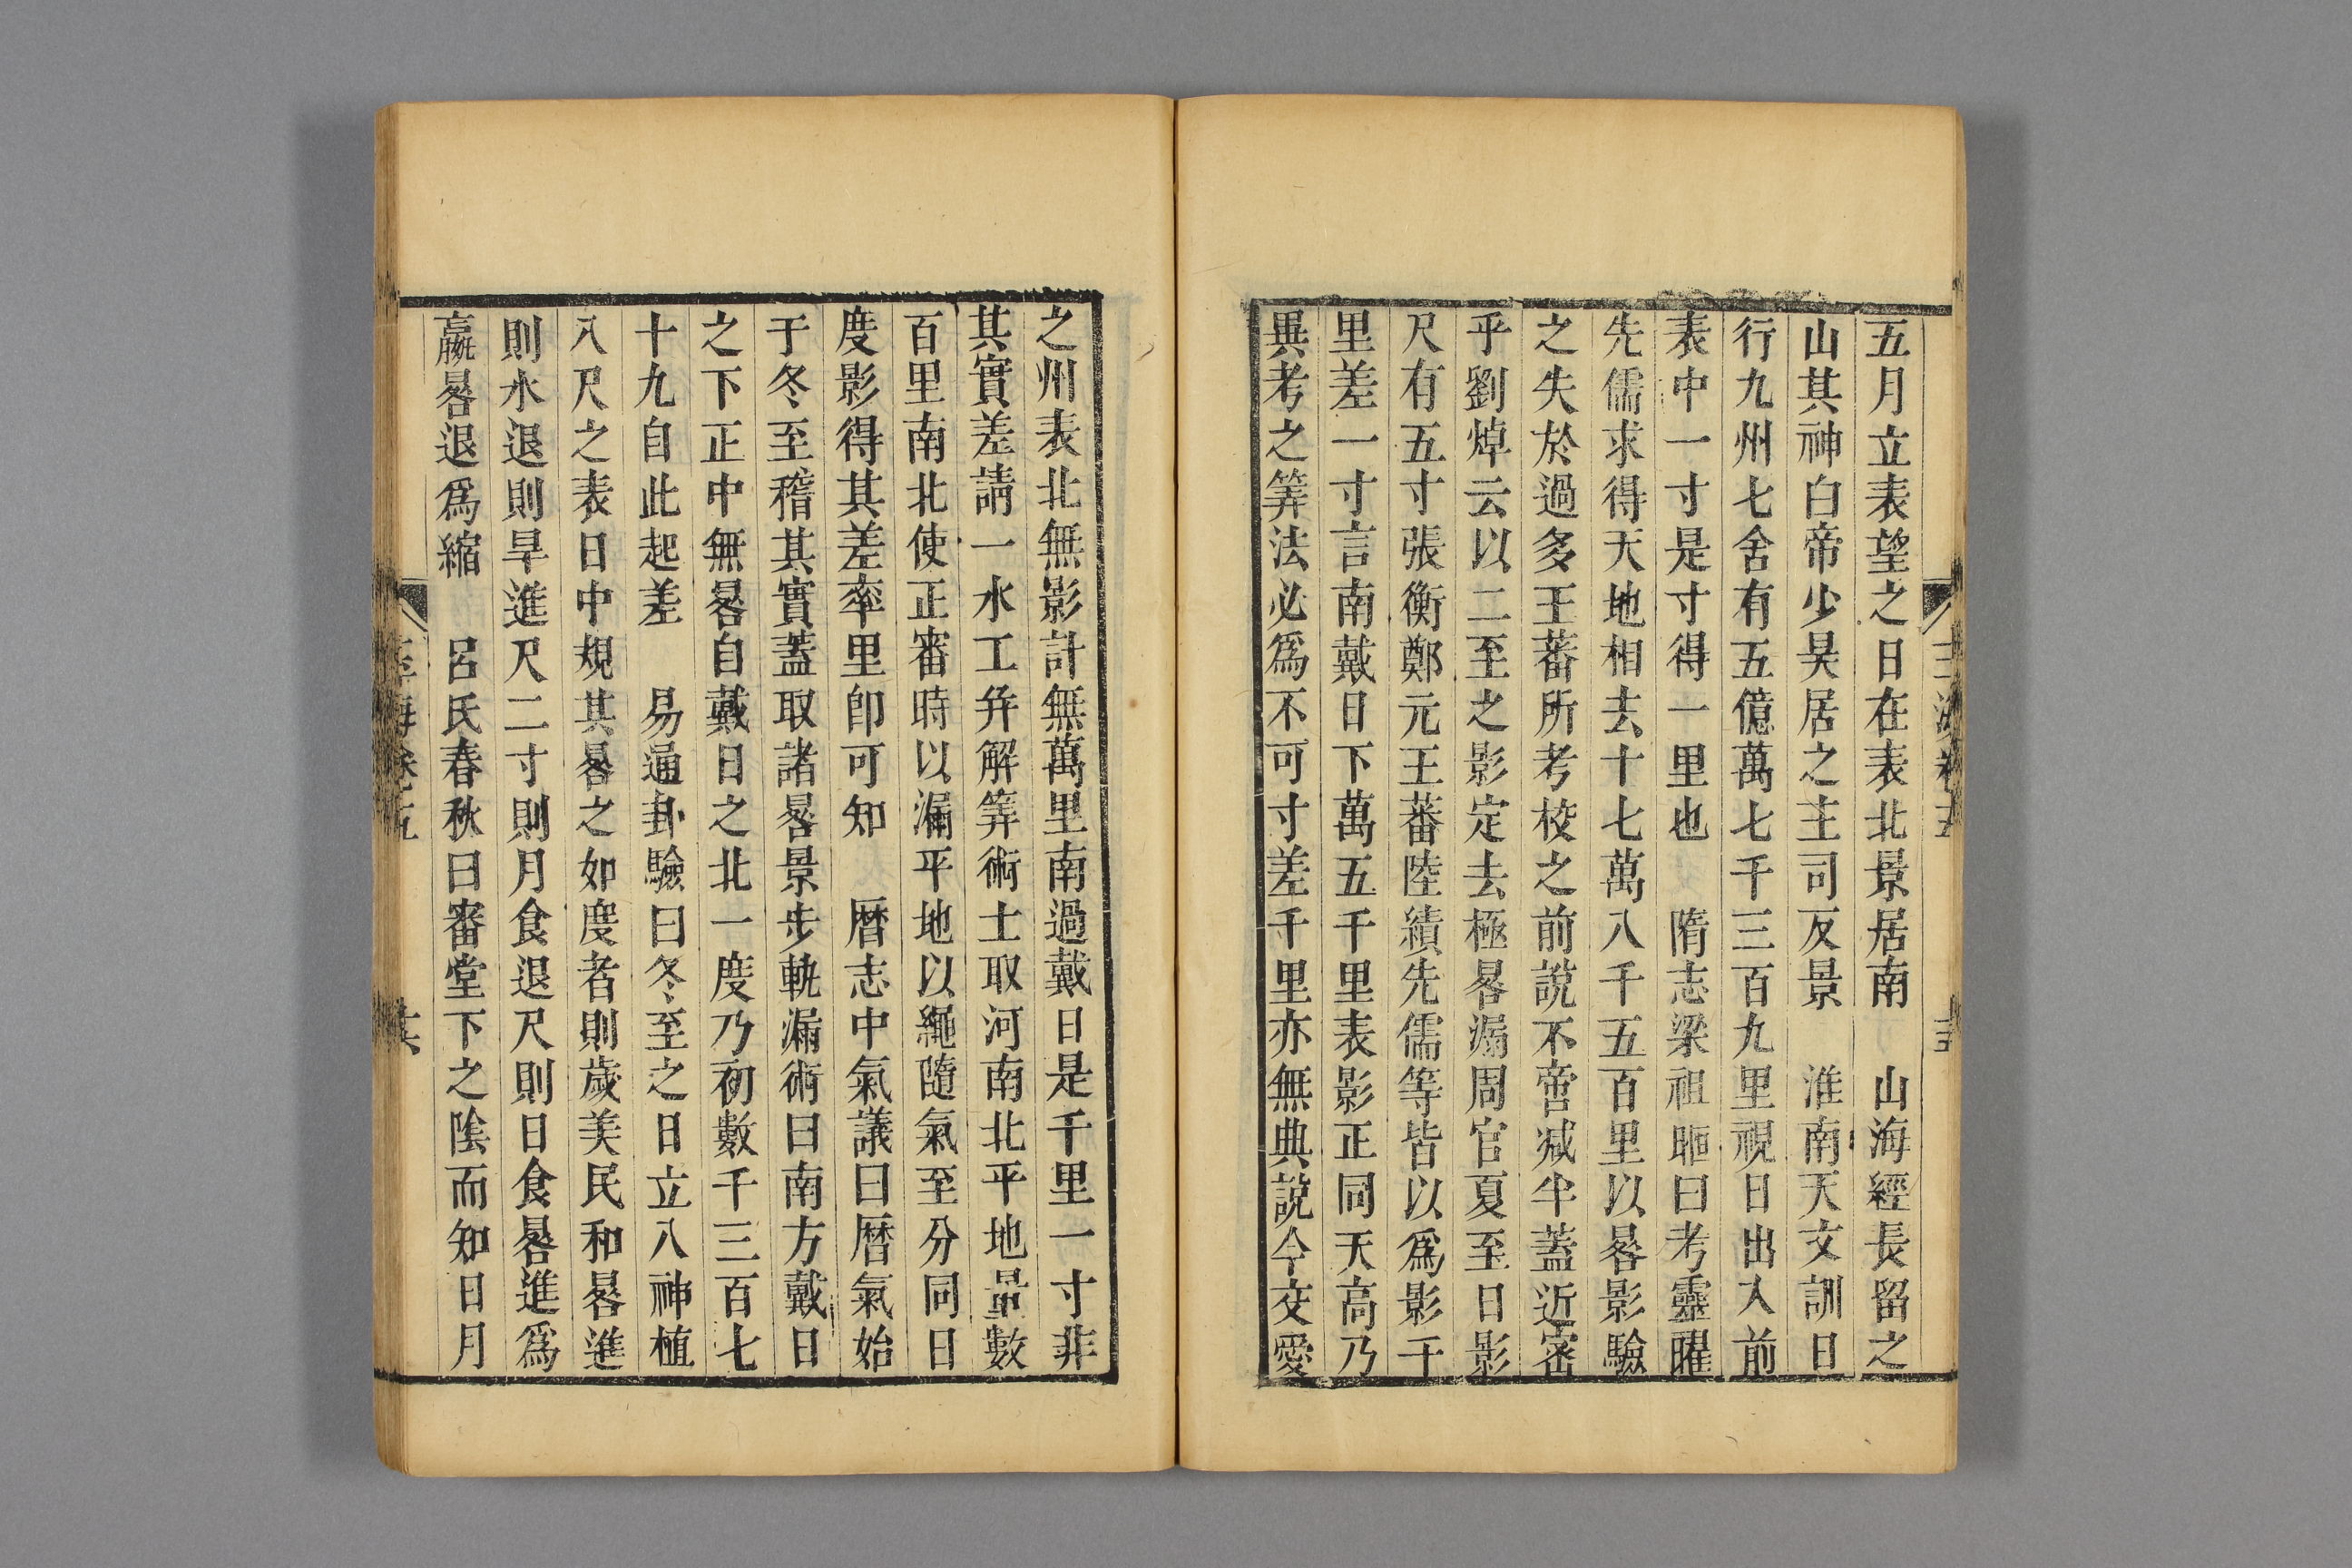 五月立表望之日在表北景居南　山海經長留之
山其神白帝少昊居之主司反景　淮南天文訓日
行九州七舍有五億萬七千三百九里視日出入前
表中一寸是寸得一里也　隋志梁祖暅曰考靈曜
先儒求得天地相去十七萬八千五百里以晷影驗
之失於過多王蕃所考校之前說不啻減半蓋近密
乎劉焯云以二至之影定去極晷漏周官夏至日影
尺有五寸張衡鄭元王蕃陸績先儒等皆以為影千
里差一寸言南戴日下萬五千里表影正同天高乃
異考之筭法必為不可寸差千里亦無典說今交愛
之州表北無影計無萬里南過戴日是千里一寸非
其實差請一水工幷解筭術士取河南北平地量數
百里南北使正審時以漏平地以繩隨氣至分同日
度影得其差率里卽可知　曆志中氣議曰曆氣始
于冬至稽其實蓋取諸晷景步軌漏術曰南方戴日
之下正中無晷自戴日之北一度乃初數千三百七
十九自此起差　易通卦驗曰冬至之日立八神植
八尺之表日中規其晷之如度者則歲美民和晷進
則水退則旱進尺二寸則月食退尺則日食晷進為
贏晷退為縮　呂氏春秋曰審堂下之陰而知日月